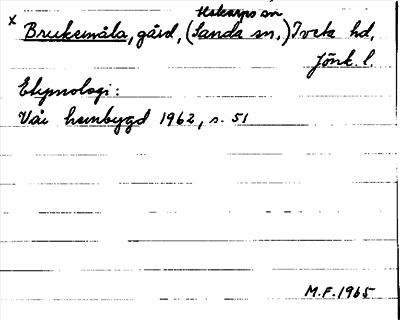 Utskarps sn
x Brukemåla, gård, (Sanda sn.) Tveta hd,
Jönk. l.
Etymologi:
Vår hembygd 1962, s. 51
M.F. 1965